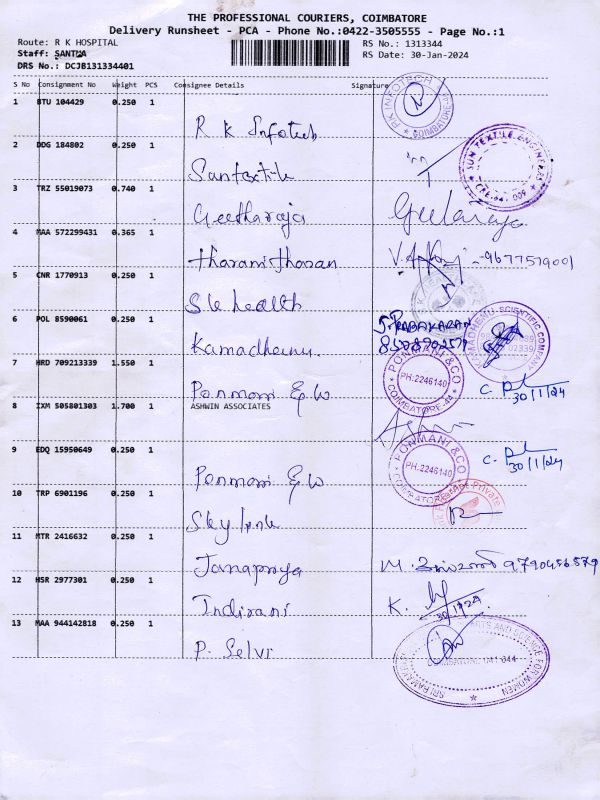 THE PROFESSIONAL COURIERS, COIMBATORE
Delivery Runsheet - PCA - Phone No.:0422-3505555 - Page No.:1
Route: R K HOSPITAL
RS No.: 1313344
Staff: SANTHA
RS Date: 30-Jan-2024
DRS No.: DCJB131334401
S No Consignment No Weight PCS Consignee Details Signature
1 BTU 104429 0.250 1
R K Infotech
RK INFOTECH
COIMBATORE
2 DDG 184802 0.250 1
Santextile
SUN TEXTILE ENGINEERS
CBE-641 009
3 TRZ 55019073 0.740 1
Geetharaja
Geetaraja
4 MAA 572299431 0.365 1
tharanitharan
9677519001
5 CNR 1770913 0.250 1
Sk health
6 POL 8590061 0.250 1
Kamadhenu
S. PRABAKARAN
KAMADHENU SCIENTIFIC COMPANY
7 HRD 709213339 1.550 1
Ponmani E W
PONMANI & CO
PH:2246140
COIMBATORE-44
30/1/24
8 IXM 505801303 1.700 1 ASHWIN ASSOCIATES
9 EDQ 15950649 0.250 1
Ponmani E W
PONMANI & CO
PH:2246140
COIMBATORE
30/1/24
10 TRP 6901196 0.250 1
Sky link
Private
11 MTR 2416632 0.250 1
Janapriya
M. 9790456579
12 HSR 2977301 0.250 1
Indirani
K.
30/1/24
13 MAA 944142818 0.250 1
P. Selvi
ARTS AND SCIENCE FOR WOMEN
COIMBATORE 641 044